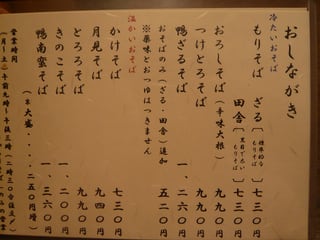 おしながき
冷たいおそば
もりそば
ざる〔標準的なもりそば〕七三〇円
田舎〔黒目で太いもりそば〕七三〇円
おろしそば（辛味大根）九九〇円
つけとろそば 九九〇円
鴨ざるそば 一、二六〇円
おそばのみ（ざる・田舎）追加 五二〇円
※薬味とおつゆはつきません
温かいおそば
かけそば 七三〇円
月見そば 九四〇円
とろろそば 九九〇円
きのこそば 一、二〇〇円
鴨南蛮そば 一、三六〇円
（※大盛・・・・二五〇円増）
営業時間
（月～土）午前九時～午後三時